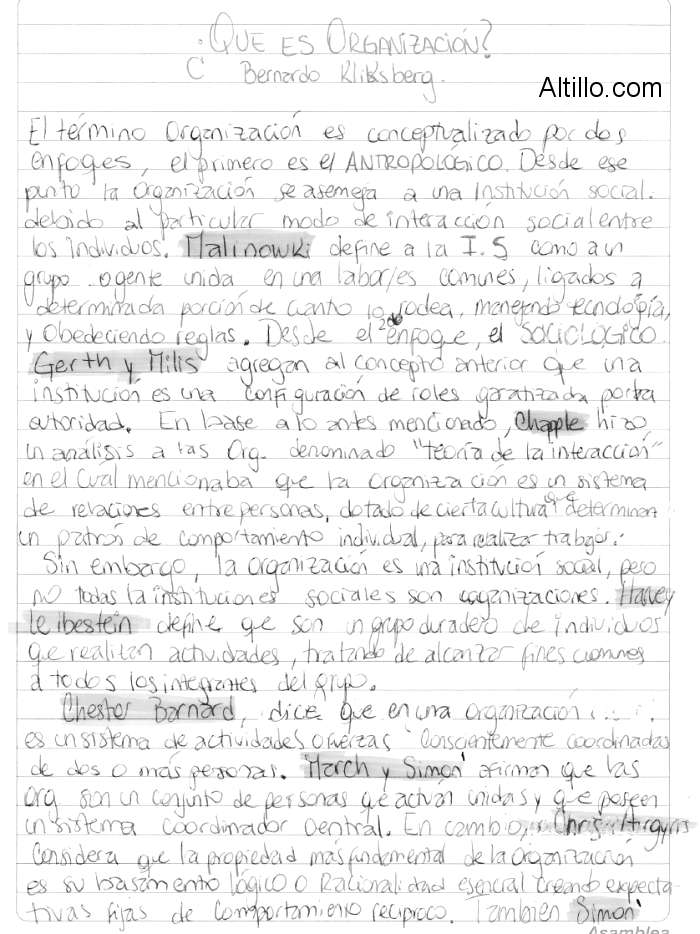 ¿QUE ES ORGANIZACIÓN?
C Bernardo Kliksberg.
Altillo.com
El término Organización es conceptualizado por dos
enfoqes, el primero es el ANTROPOLÓGICO. Desde ese
punto la Organización se asemeja a una Institución social.
debido al particular modo de interacción social entre
los individuos. Malinowki define a la I.S como a un
grupo o gente unida en una labor/es comunes, ligados a
determinada porción de cuanto lo rodea, manejando tecnología,
y obedeciendo reglas. Desde el 2do enfoque, el SOCIOLOGICO.
Gerth y Milis agregan al concepto anterior que una
institución es una configuración de roles garatizada por la
autoridad. En base a lo antes mencionado, Chapple hizo
un análisis a las Org. denominado "teoría de la interacción"
en el cuál mencionaba que la organización es un sistema
de relaciones entre personas, dotado de cierta cultura que determinan
un patrón de comportamiento individual, para realizar trabajos.
Sin embargo, la organización es una institución social, pero
no todas la instituciones sociales son organizaciones. Harvey
Leibestein define que son un grupo duradero de individuos
qe realizan actividades, tratando de alcanzar fines comunes
a todos los integrantes del grupo.
Chester Barnard, dice que en una organización
es un sistema de actividades o fuerzas conscientemente coordinadas
de dos o más personas. March y Simon afirman que las
org son un conjunto de personas qe actúan unidas y qe poseen
un sistema coordinador central. En cambio, Chris Argyris
considera que la propiedad más fundamental de la organización
es su basamento lógico o Racionalidad esencial creando expecta-
tivas fijas de comportamiento recíproco. También Simon
Asamblea